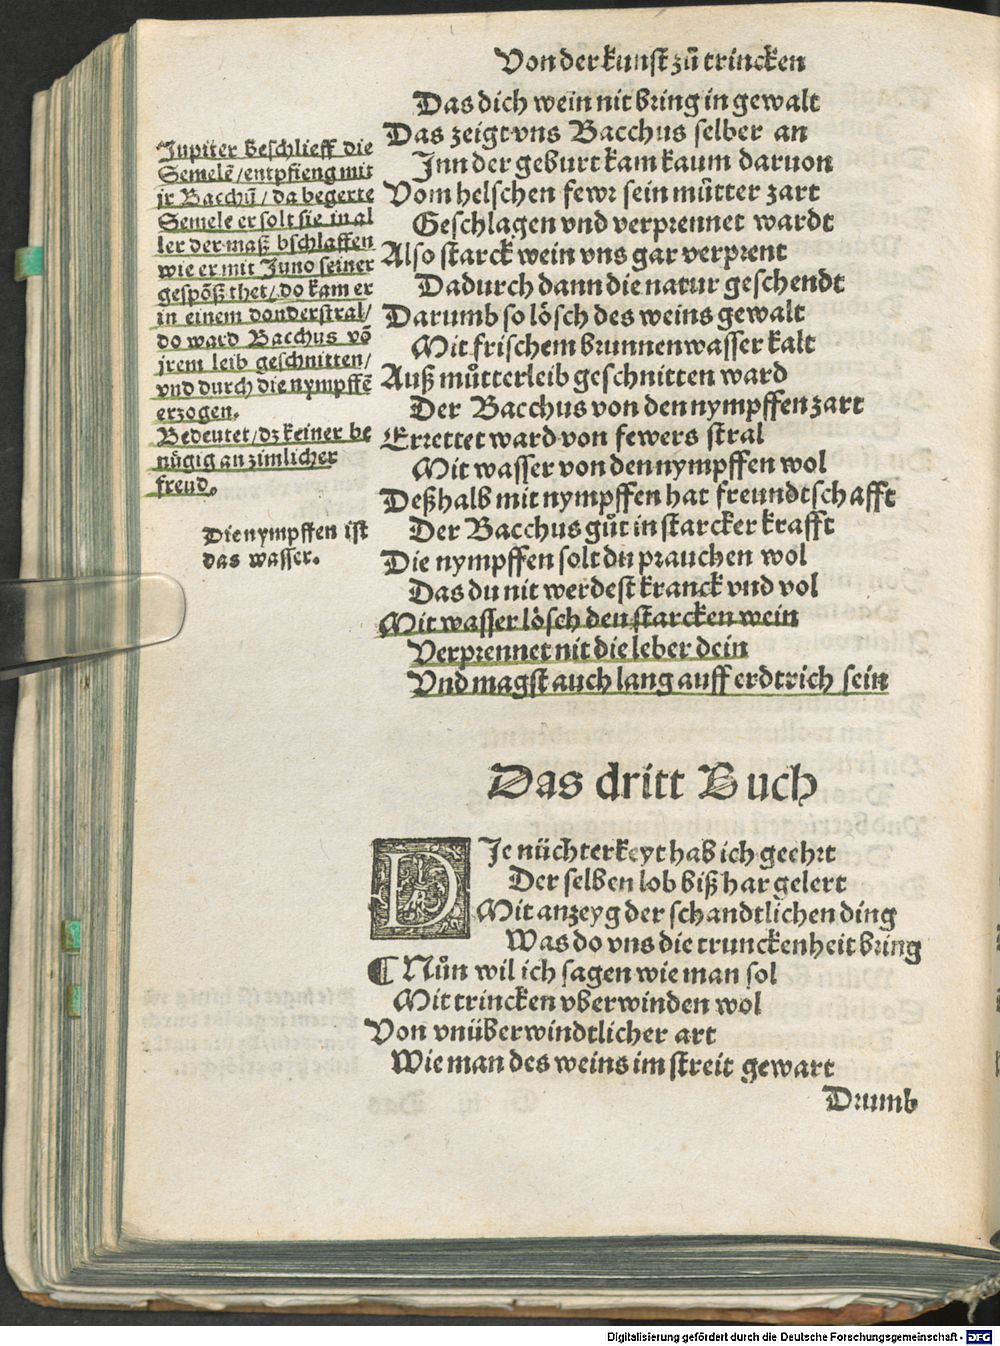 Von der kunst zů trincken
Das dich wein nit bring in gewalt
Das zeigt vns Bacchus selber an
Inn der geburt kam kaum daruon
Vom helschen fewr sein můtter zart
Geschlagen vnd verprennet wardt
Also starck wein vns gar verprent
Dadurch dann die natur geschendt
Darumb so lösch des weins gewalt
Mit frischem brunnenwasser kalt
Auß můtterleib geschnitten ward
Der Bacchus von den nympffen zart
Errettet ward von fewers stral
Mit wasser von den nympffen wol
Deßhalb mit nympffen hat freundtschafft
Der Bacchus gůt in starcker krafft
Die nympffen solt du prauchen wol
Das du nit werdest kranck vnd vol
Mit wasser lösch den starcken wein
Verprennet nit die leber dein
Vnd magst auch lang auff erdtrich sein
Jupiter beschlieff die
Semelē/entpfieng mit
jr Bacchū/ da begerte
Semele er solt sie in al
ler der maß bschlaffen
wie er mit Juno seiner
gespōß thet/ do kam er
in einem donderstral/
do ward Bacchus vō
jrem leib geschnitten/
vnd durch die nympffē
erzogen.
Bedeutet/dz keiner be
nůgig an zimlicher
freud.
Die nympffen ist
das wasser.
Das dritt Buch
DIe nüchterkeyt hab ich geehrt
Der selben lob biß har gelert
Mit anzeyg der schandtlichen ding
Was do vns die trunckenheit bring
¶ Nůn wil ich sagen wie man sol
Mit trincken vberwinden wol
Von vnüberwindtlicher art
Wie man des weins im streit gewart
Drumb
Digitalisierung gefördert durch die Deutsche Forschungsgemeinschaft - DFG